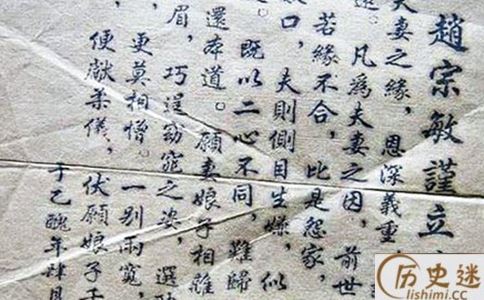 趙宗敏謹立
夫妻之緣，恩深義重，
凡為夫妻之因，前世
若緣不合，比是怨家，
口，夫則側目生嫌，似
既以二心不同，難歸
還本道。願妻娘子相離
眉，巧逞窈窕之姿，選
更莫相憎。一別兩寬，
便獻柔儀。伏願娘子千
于乙醜年肆月
历史迷
lishimi.cc